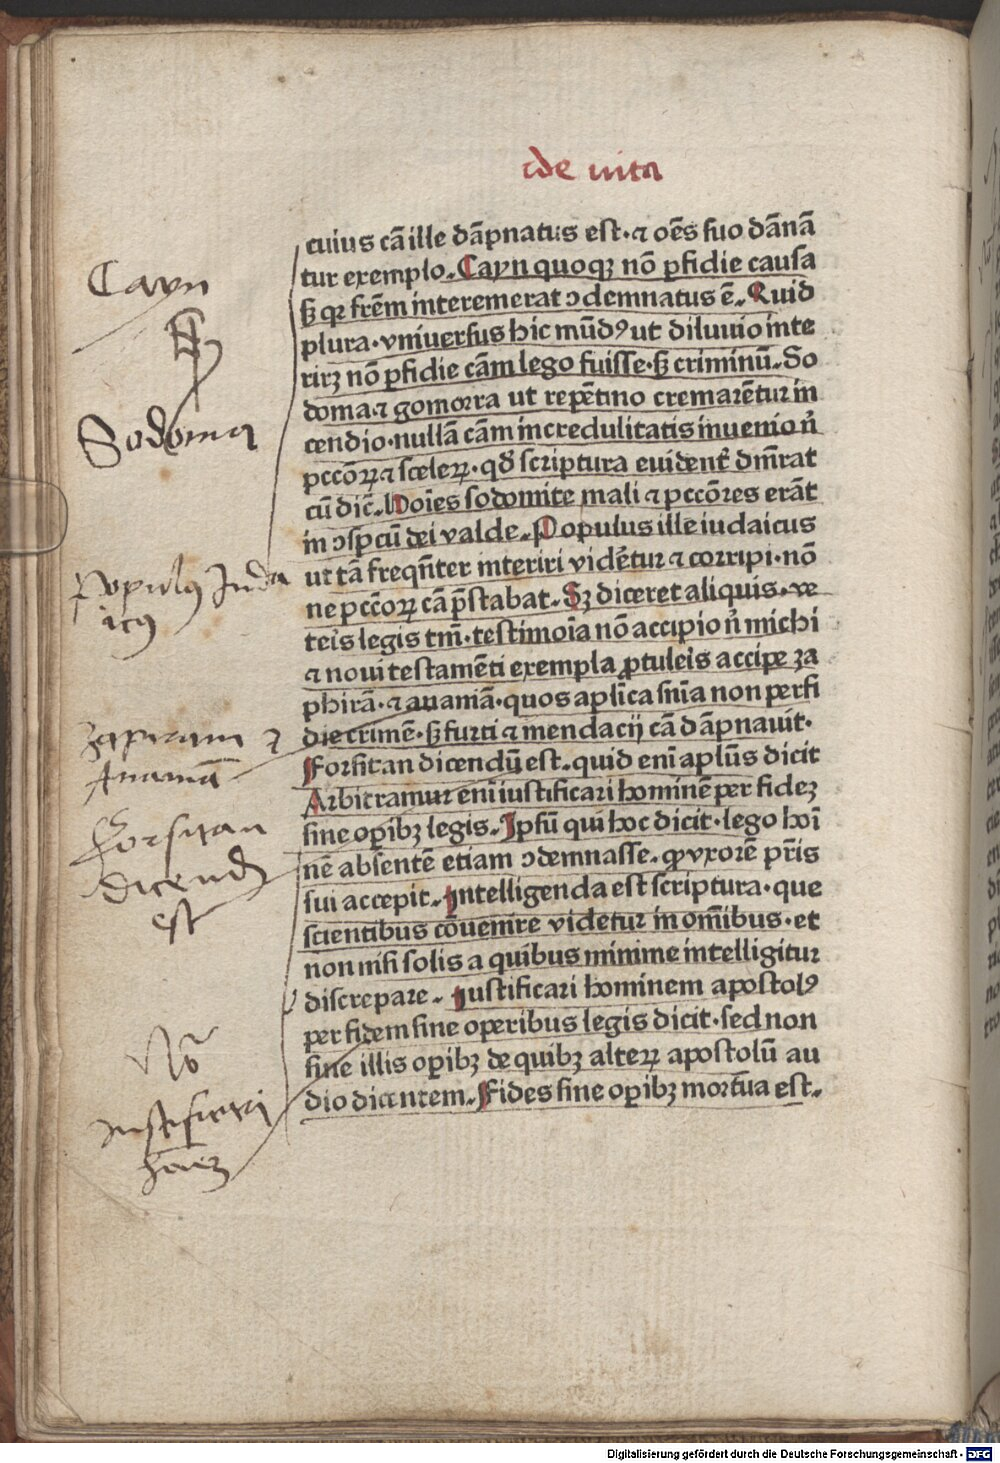 de vita
cuius cā ille dāpnatus est· ⁊ oēs suo dānā
tur exemplo. Cayn quoqꝫ nō ꝑfidie causa
sꝫ qꝛ frēm interemerat ↄdemnatus ē. Quid
plura· vniuersus hic mūdꝰ ut diluuio inte
rirꝫ nō ꝑfidie cām lego fuisse· sꝫ criminū. So
doma ⁊ gomorra ut repētino cremarētur in
cendio· nullā cām incredulitatis inuenio n̄
pccōꝝ ⁊ scelerꝝ· qd̄ scriptura euident̄ dm̄rat
cū dic̄. Hoīes sodomite mali ⁊ pccōres erāt
in ↄspcū dei valde. Populus ille iudaicus
ut tā freqn̄ter interiri vidētur ⁊ corripi· nō
ne pccōꝝ cā p̄stabat. Sꝫ diceret aliquis· ve
teis legis tm̄· testimoīa nō accipio n̄ michi
⁊ noui testamēti exempla ꝓtuleis accipe za
phirā· ⁊ ananiā· quos aplīca snīa non perfi
die crimē· sꝫ furti ⁊ mendacij cā dāpnauit·
Forsitan dicendū est. quid enī aplūs dicit
Arbitramur enī iustificari hominē per fideꝫ
sine oꝑibꝫ legis. Ipsū qui hoc dicit· lego hoī
nē absentē etiam ↄdemnasse· ꝙ vxorē pr̄is
sui accepit. Intelligenda est scriptura· que
scientibus cōuenire videtur in omībus· et
non nisi solis a quibus minime intelligitur
discrepare. Iustificari hominem apostolꝰ
per fidem sine operibus legis dicit· sed non
sine illis oꝑibꝫ de quibꝫ alterꝝ apostolū au
dio dicentem. Fides sine oꝑibꝫ mortua est.
Cayn
Sodoma
Populꝰ Iuda
icꝰ
Zapiram ⁊
Ananiā
Forsitan
dicend
est
No
iustificari